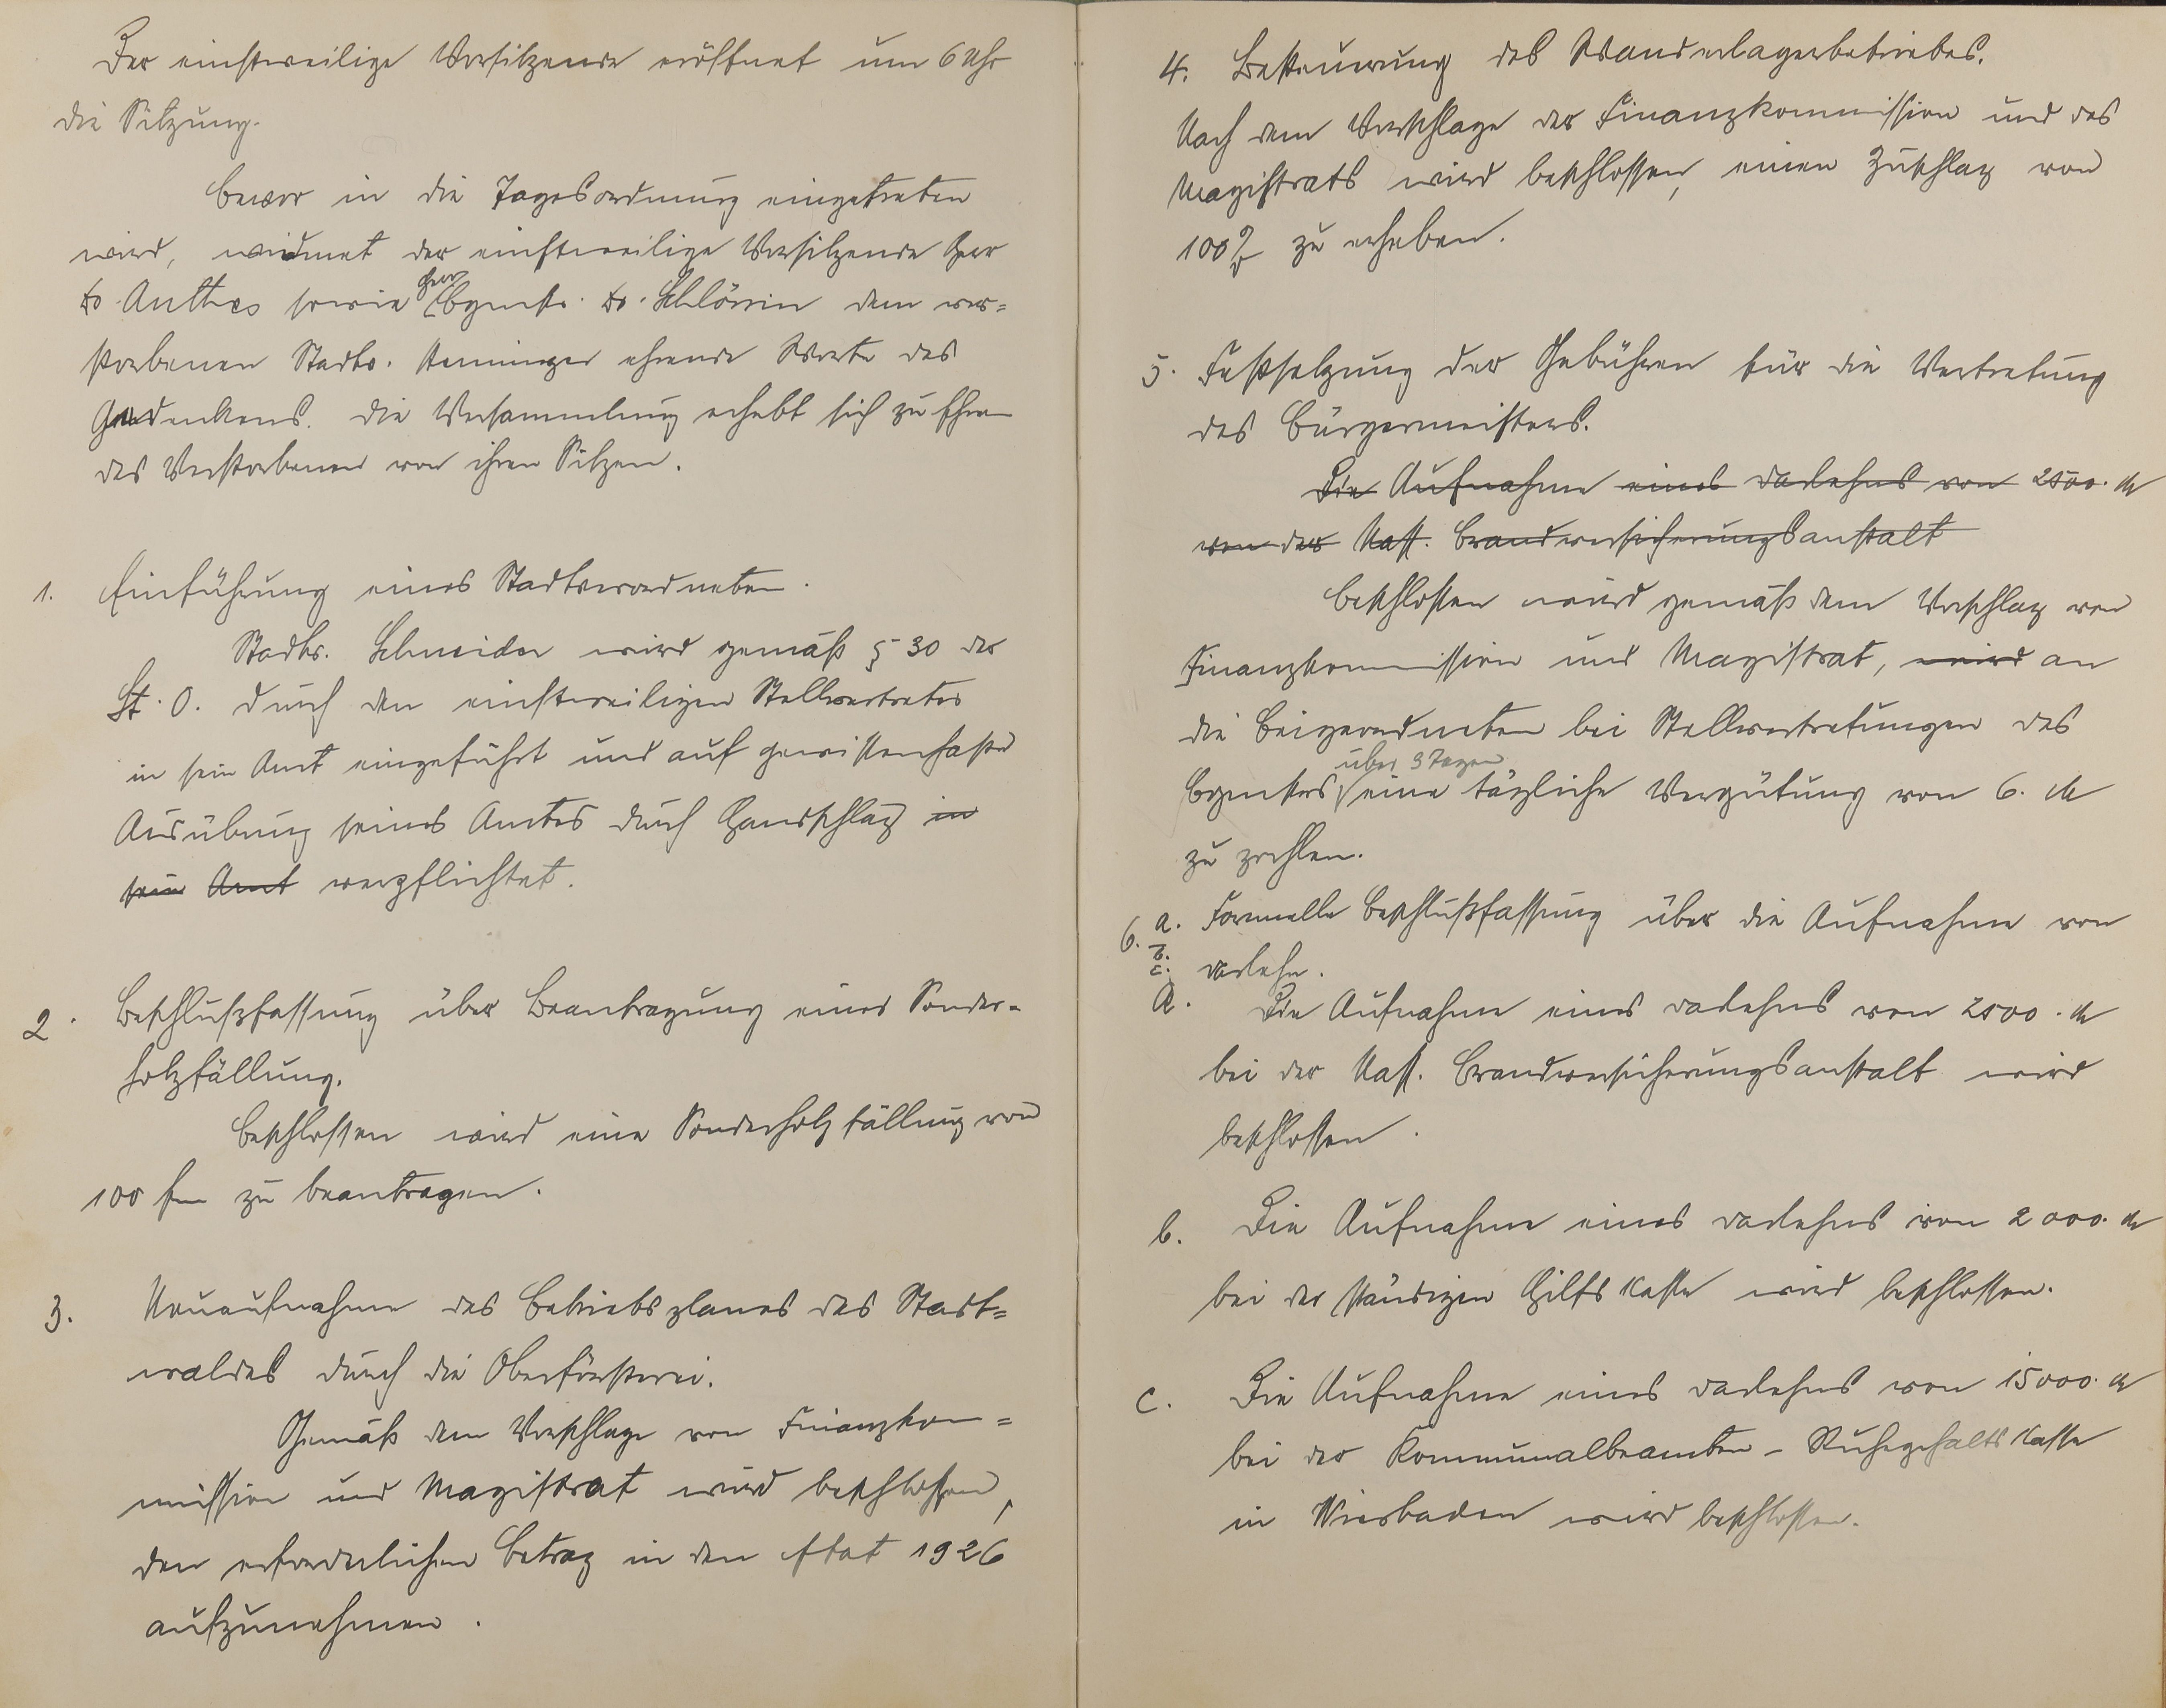 Der einstweilige Vorsitzende eröffnet um 6 Uhr
die Sitzung.
Bevor in die Tagesordnung eingetreten
wird, widmet der einstweilige Vorsitzende Herr
Dr. Anthes sowie Herr Bgmstr. Dr. Schlörin dem ver=
storbenen Stadtv. Henninger ehrende Worte des
Gedenkens. Die Versammlung erhebt sich zu Ehren
des Verstorbenen von ihren Sitzen.
1. Einführung eines Stadtverordneten.
Stadtv. Schneider wird gemäß § 30 der
St. O. durch den einstweiligen Stellvertreter
in sein Amt eingeführt und auf gewissenhafte
Ausübung seines Amtes durch Handschlag in
sein Amt verpflichtet.
2. Beschlußfassung über Beantragung einer Sonder-
holzfällung.
Beschlossen wird eine Sonderholzfällung von
100 fm zu beantragen.
3. Neuaufnahme des Betriebsplanes des Stadt=
waldes durch die Oberförsterei.
Gemäß dem Vorschlage von Finanzkom=
mission und Magistrat wird beschlossen,
den erforderlichen Betrag in den Etat 1926
aufzunehmen.
4. Besteuerung des Wanderlagerbetriebes.
Nach dem Vorschlage der Finanzkommission und des
Magistrats wird beschlossen, einen Zuschlag von
100 % zu erheben.
5. Festsetzung der Gebühren für die Vertretung
des Bürgermeisters.
Die Aufnahme eines Darlehns von 2500. M
von der Nass. Brandversicherungsanstalt
Beschlossen wird gemäß dem Vorschlag von
Finanzkommission und Magistrat, wird an
die Beigeordneten bei Stellvertretungen des
Bgmstrs über 3 Tagen eine tägliche Vergütung von 6. M
zu zahlen.
6. a. b. c. Formelle Beschlußfassung über die Aufnahme von
Darlehn.
a. Die Aufnahme eines Darlehns von 2500. M
bei der Nass. Brandversicherungsanstalt wird
beschlossen.
b. Die Aufnahme eines Darlehns von 2000. M
bei der ständigen Hilfskasse wird beschlossen.
c. Die Aufnahme eines Darlehns von 15000. M
bei der Kommunalbeamten-Ruhegehaltskasse
in Wiesbaden wird beschlossen.